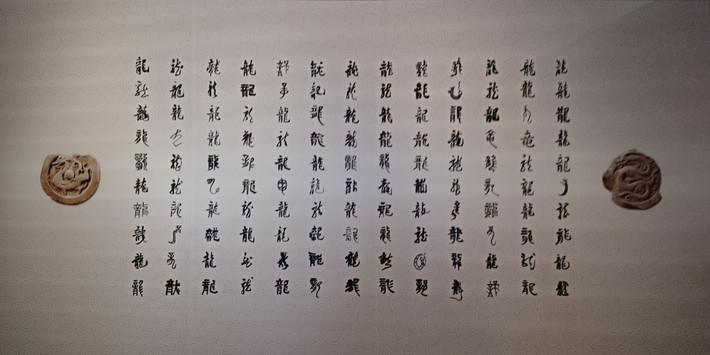 龍龍龍龍龍龍龍龍龍龍龍龍龍
龍龍龍龍龍龍龍龍龍龍龍龍龍
龍龍龍龍龍龍龍龍龍龍龍龍龍
龍龍龍龍龍龍龍龍龍龍龍龍龍
龍龍龍龍龍龍龍龍龍龍龍龍龍
龍龍龍龍龍龍龍龍龍龍龍龍龍
龍龍龍龍龍龍龍龍龍龍龍龍龍
龍龍龍龍龍龍龍龍龍龍龍龍龍
龍龍龍龍龍龍龍龍龍龍龍龍龍
龍龍龍龍龍龍龍龍龍龍龍龍龍